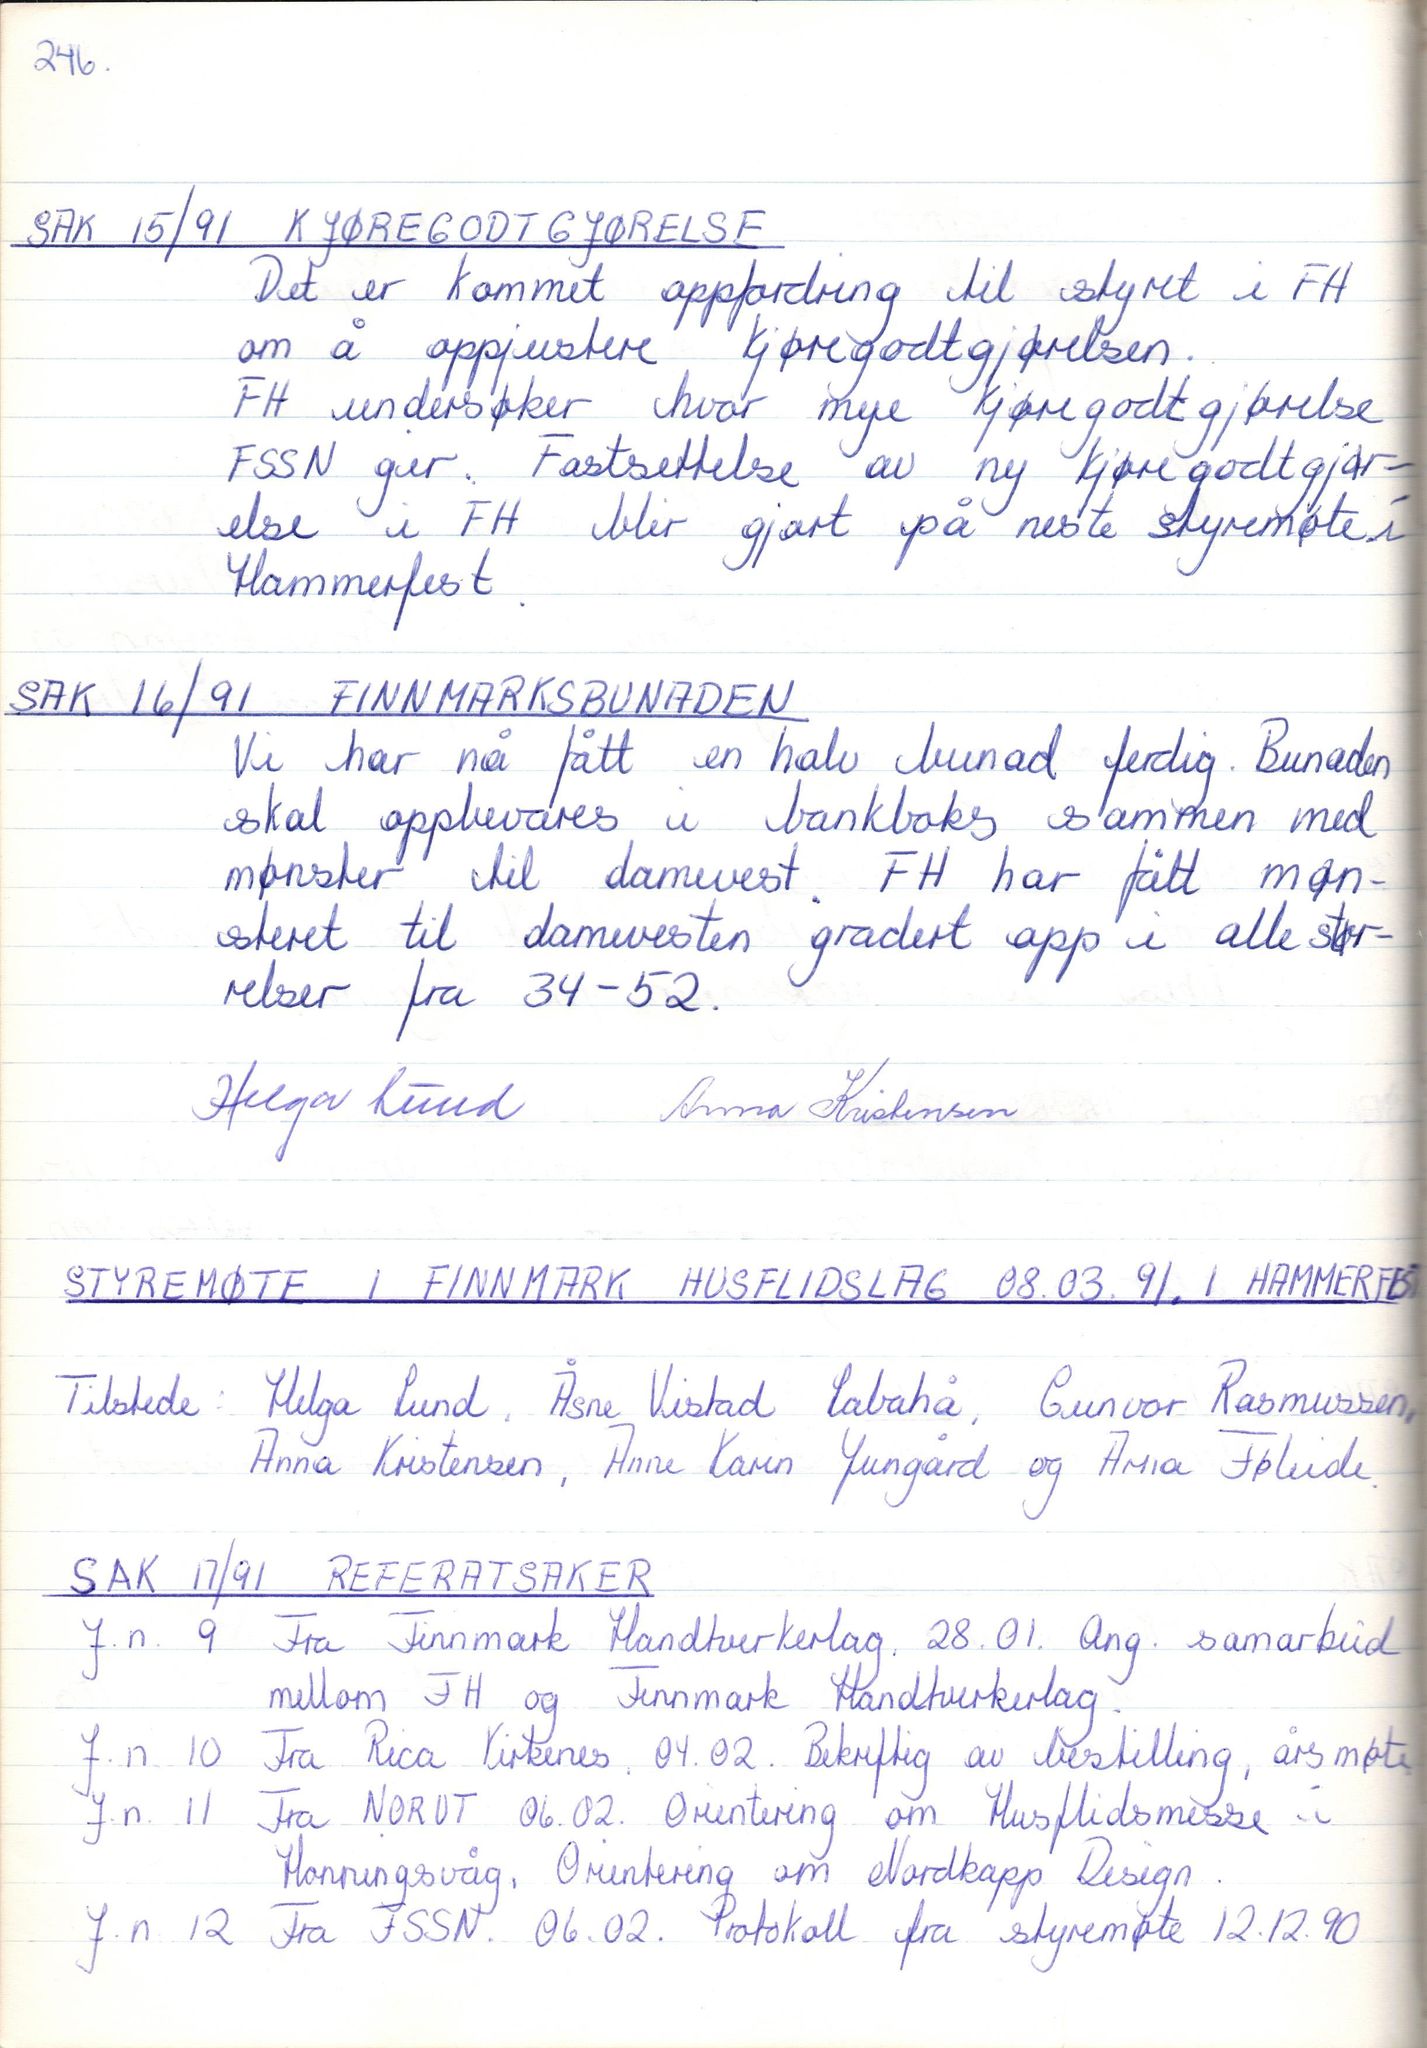 246.
SAK 15/91 KJØREGODTGJØRELSE
Det er kommet oppfordring til styret i FH
om å oppjustere kjøregodtgjørelsen.
FH undersøker hvor mye kjøregodtgjørelse
FSSN gir. Fastsettelse av ny kjøregodtgjør-
else i FH blir gjort på neste styremøte i
Hammerfest.
SAK 16/91 FINNMARKSBUNADEN
Vi har nå fått en halv bunad ferdig. Bunaden
skal oppbevares i bankboks sammen med
mønster til damevest. FH har fått møn-
steret til damevesten gradert opp i alle stør-
relser fra 34-52.
Helga Lund Anna Kristensen
STYREMØTE I FINNMARK HUSFLIDSLAG 08.03.91. I HAMMERFEST
Tilstede: Helga Lund, Åsne Vistad Labahå, Gunvor Rasmussen,
Anna Kristensen, Anne Karin Ljungård og Arna Føleide.
SAK 17/91 REFERATSAKER
J.n. 9 Fra Finnmark Handtverkerlag. 28.01. Ang. samarbeid
mellom FH og Finnmark Handtverkerlag.
J.n. 10 Fra Rica Kirkenes. 04.02. Bekreftig av bestilling, årsmøte
J.n. 11 Fra NORUT 06.02. Orientering om Husflidsmesse i
Honningsvåg, Orientering om Nordkapp Design.
J.n. 12 Fra FSSN. 06.02. Protokoll fra styremøte 12.12.90